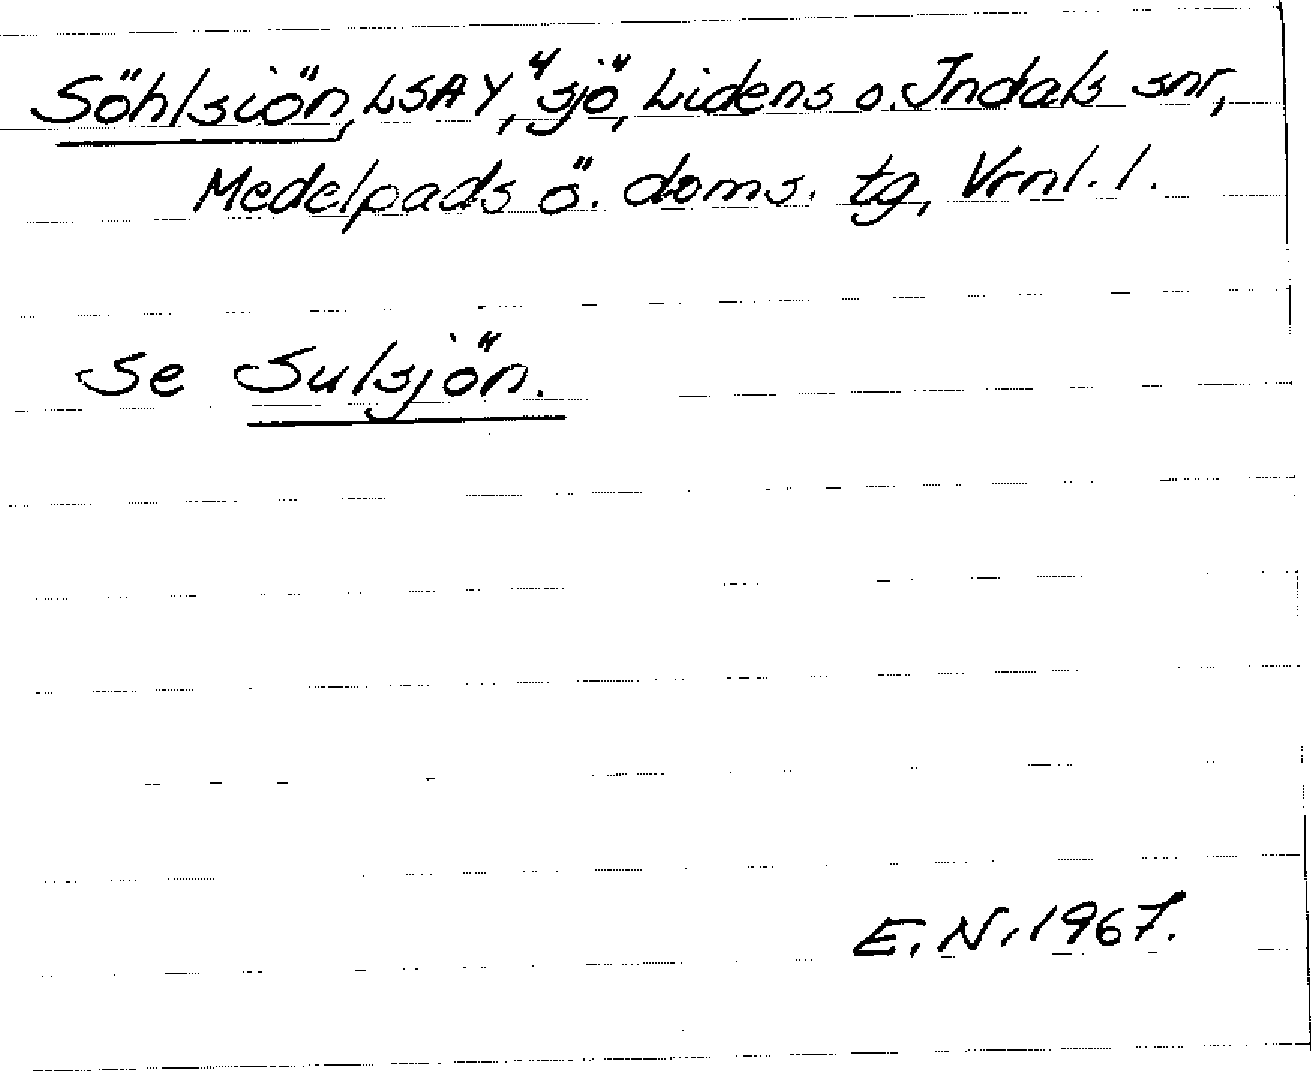 Söhlsiön, LSA Y, "sjö", Lidens o. Indals snr,
Medelpads ö. doms. tg, Vrnl. l.
Se Sulsjön.
E.N. 1967.